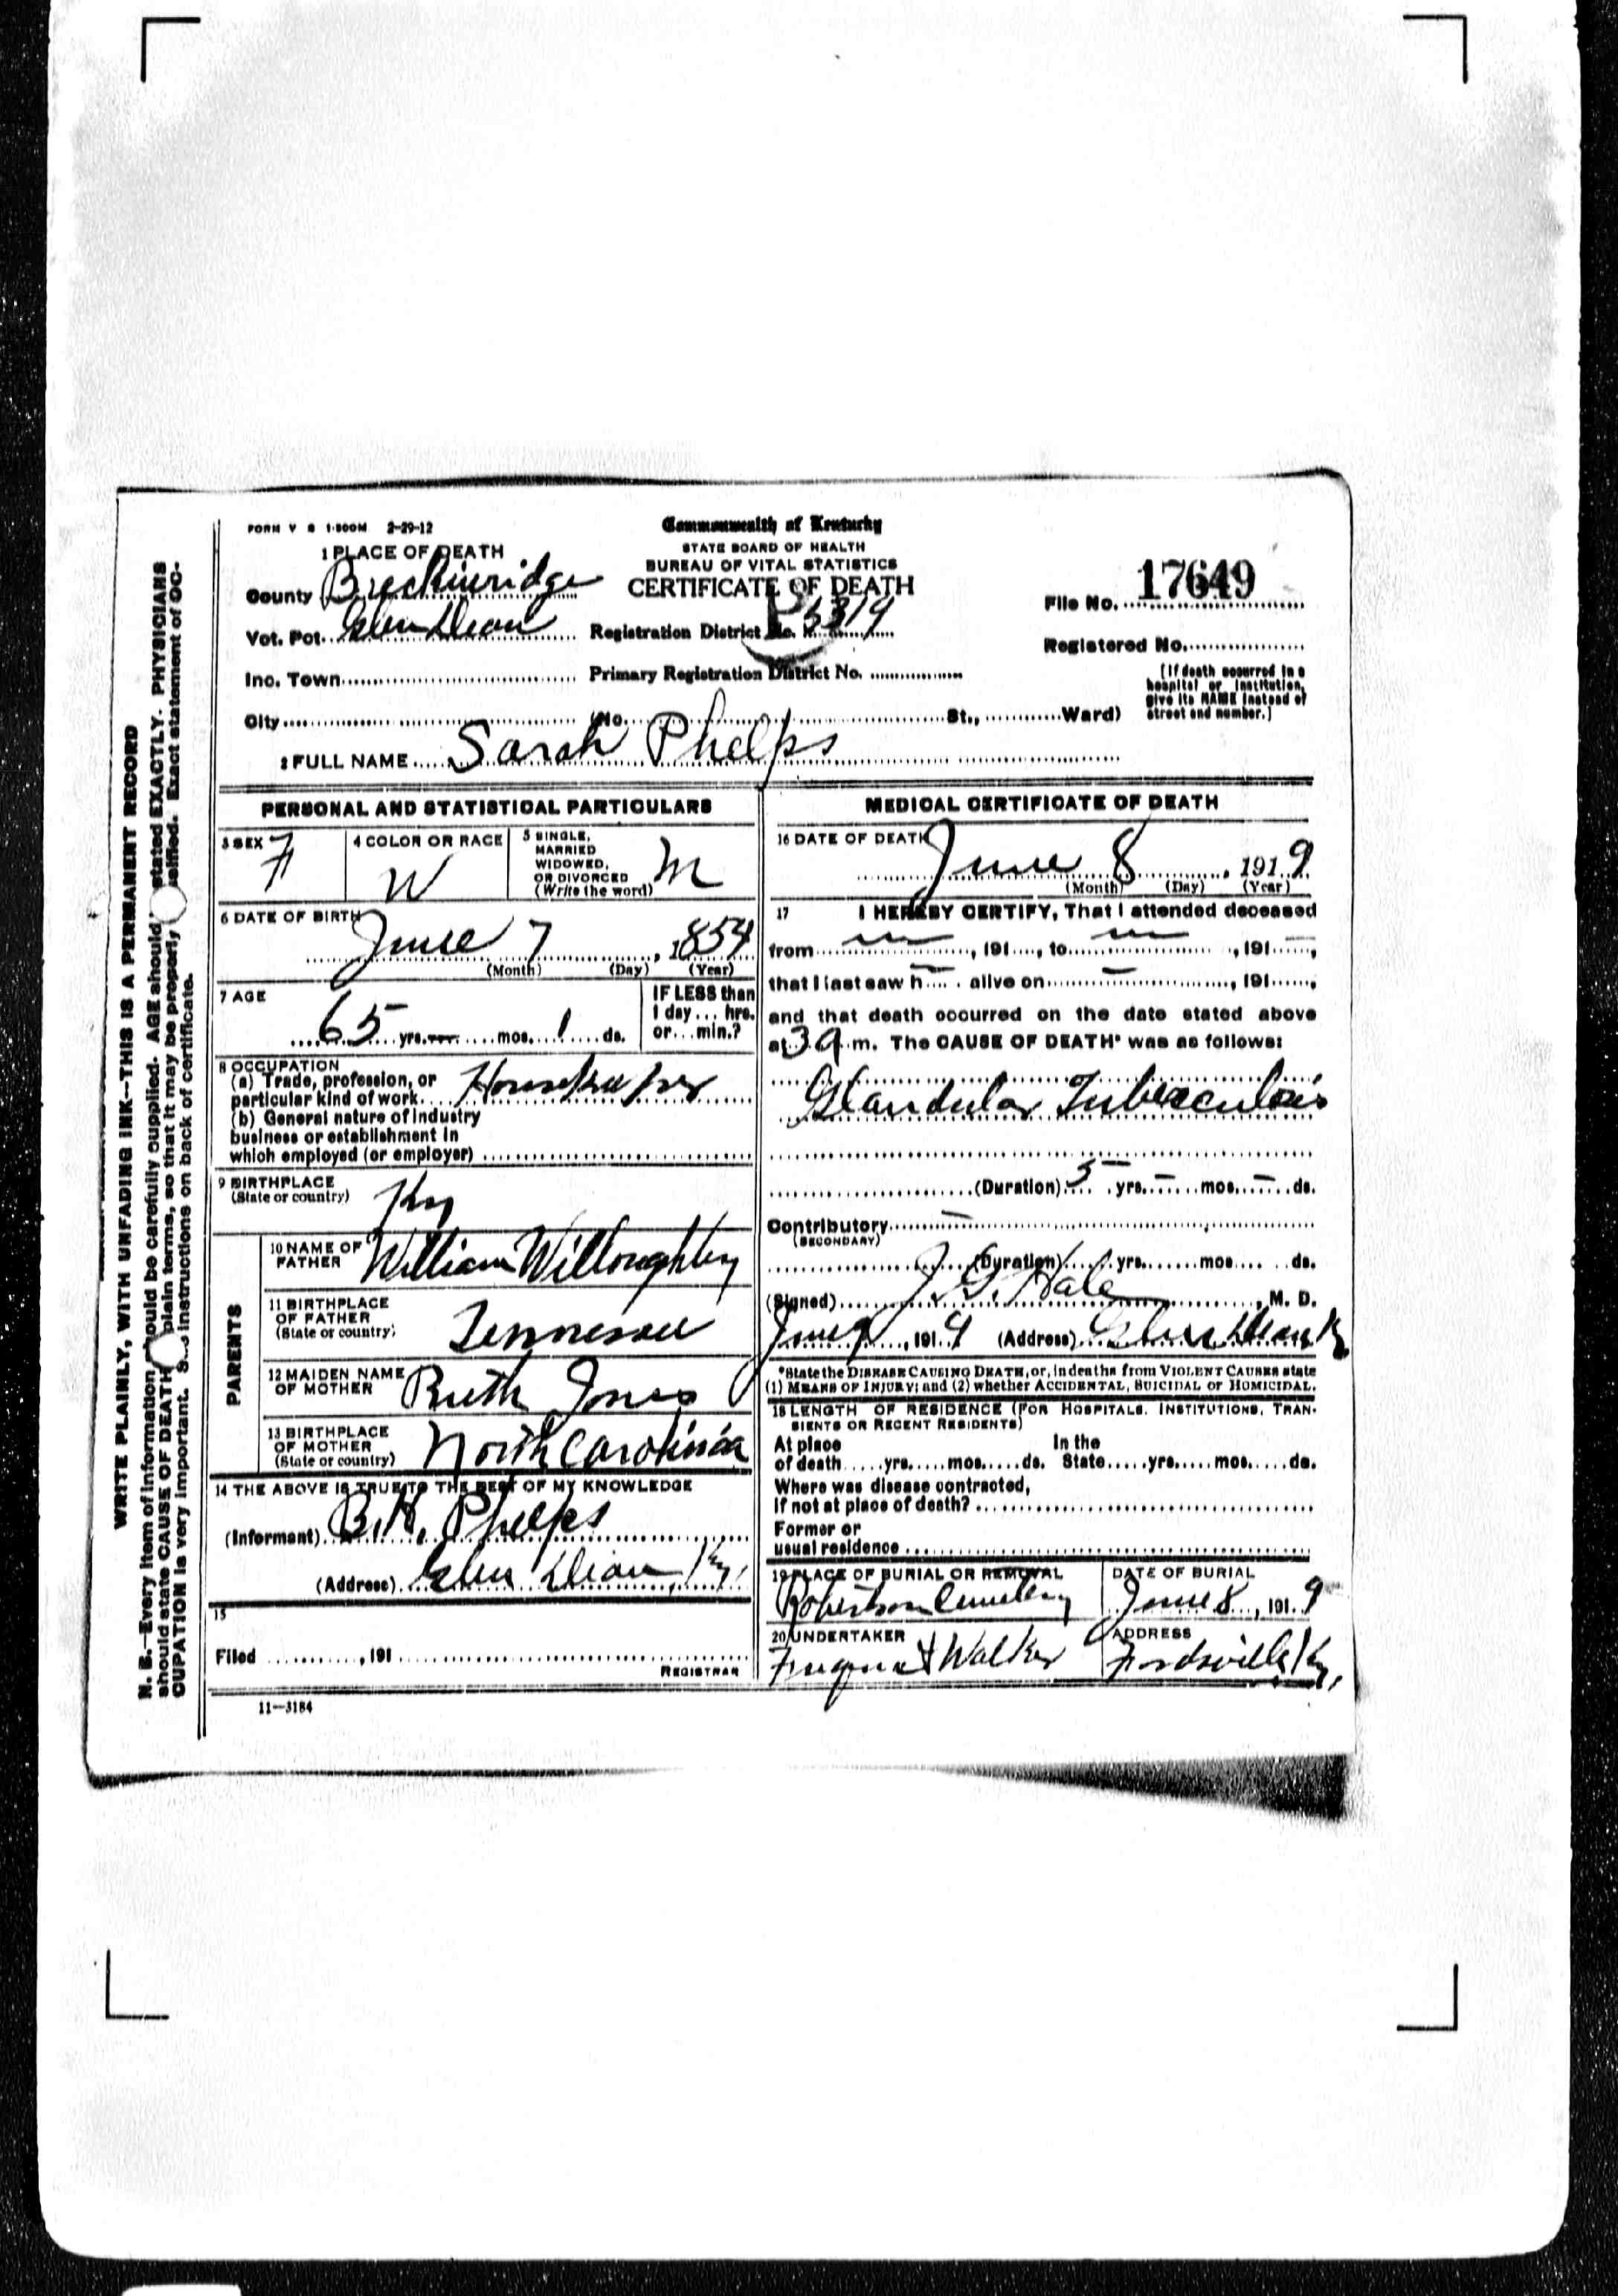 FORM V S 1-500M 2-29-12
Commonwealth of Kentucky
STATE BOARD OF HEALTH
BUREAU OF VITAL STATISTICS
CERTIFICATE OF DEATH
1 PLACE OF DEATH
County Breckinridge
Vot. Pct. Glen Dean
Inc. Town
City (No. St., Ward)
Registration District No. 3319
Primary Registration District No.
File No. 17649
Registered No.
(If death occurred in a
hospital or institution,
give its NAME instead of
street and number.)
2 FULL NAME Sarah Phelps
PERSONAL AND STATISTICAL PARTICULARS
3 SEX F
4 COLOR OR RACE W
5 SINGLE,
MARRIED
WIDOWED,
OR DIVORCED
(Write the word) M
6 DATE OF BIRTH
June 7, 1854
(Month) (Day) (Year)
7 AGE
65 yrs. mos. 1 ds.
IF LESS than
1 day ... hrs.
or ... min.?
8 OCCUPATION
(a) Trade, profession, or
particular kind of work Housekeeper
(b) General nature of industry
business or establishment in
which employed (or employer)
9 BIRTHPLACE
(State or country) Ky
PARENTS
10 NAME OF
FATHER William Willoughby
11 BIRTHPLACE
OF FATHER
(State or country) Tennessee
12 MAIDEN NAME
OF MOTHER Ruth Jones
13 BIRTHPLACE
OF MOTHER
(State or country) North Carolinia
14 THE ABOVE IS TRUE TO THE BEST OF MY KNOWLEDGE
(Informant) B.H. Phelps
(Address) Glen Dean, Ky.
15
Filed , 191
REGISTRAR
11-3184
MEDICAL CERTIFICATE OF DEATH
16 DATE OF DEATH
June 8, 1919
(Month) (Day) (Year)
17 I HEREBY CERTIFY, That I attended deceased
from , 191 , to , 191 ,
that I last saw h alive on , 191 ,
and that death occurred on the date stated above
at 3 a m. The CAUSE OF DEATH* was as follows:
Glandular Tuberculois
(Duration) 5 yrs. – mos. – ds.
Contributory
(SECONDARY)
(Duration) yrs. mos. ds.
(Signed) J.G. Hale, M. D.
June 9, 1919 (Address) Glen Dean Ky
*State the DISEASE CAUSING DEATH, or, in deaths from VIOLENT CAUSES state
(1) MEANS OF INJURY; and (2) whether ACCIDENTAL, SUICIDAL or HOMICIDAL.
18 LENGTH OF RESIDENCE (FOR HOSPITALS, INSTITUTIONS, TRAN-
SIENTS OR RECENT RESIDENTS)
At place In the
of death yrs. mos. ds. State yrs. mos. ds.
Where was disease contracted,
If not at place of death?
Former or
usual residence
19 PLACE OF BURIAL OR REMOVAL
Robertson Cemetery
DATE OF BURIAL
June 8, 1919
20 UNDERTAKER
& Walker
ADDRESS
Fordsville Ky.
WRITE PLAINLY, WITH UNFADING INK--THIS IS A PERMANENT RECORD
N. B.—Every item of information should be carefully supplied. AGE should stated EXACTLY. PHYSICIANS
should state CAUSE OF DEATH plain terms, so that it may be properly classified. Exact statement of OC-
CUPATION is very important. instructions on back of certificate.